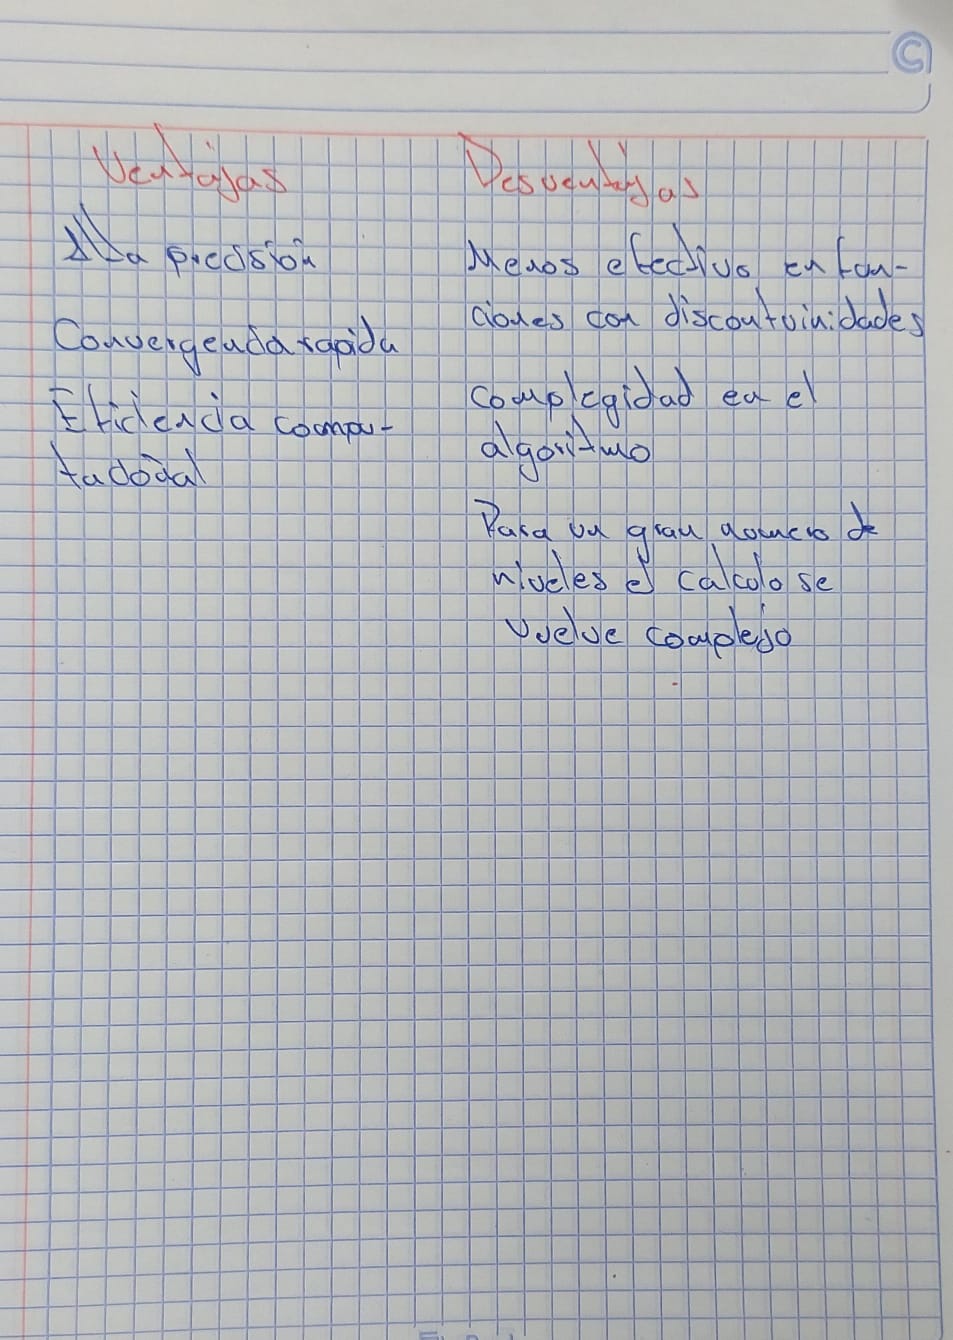 Ventajas
Alta precisión
Convergencia rapida
Eficiencia compu-
tacional
Desventajas
Menos efectivo en fun-
ciones con discontuinidades
complegidad en el
algoritmo
Para un gran numero de
niveles el calculo se
vuelve complejo